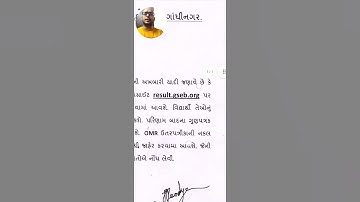 ગાંધીનગર.
ની અખબારી યાદી જણાવે છે કે
સાઈટ result.gseb.org પર
વામાં આવશે. વિદ્યાર્થી તેઓનું
કશે. પરિણામ બાદના ગુણપત્રક
શે. OMR ઉત્તરપત્રીકાની નકલ
થી જાહેર કરવામા આવશે. જેની
નોંધ લેવી.